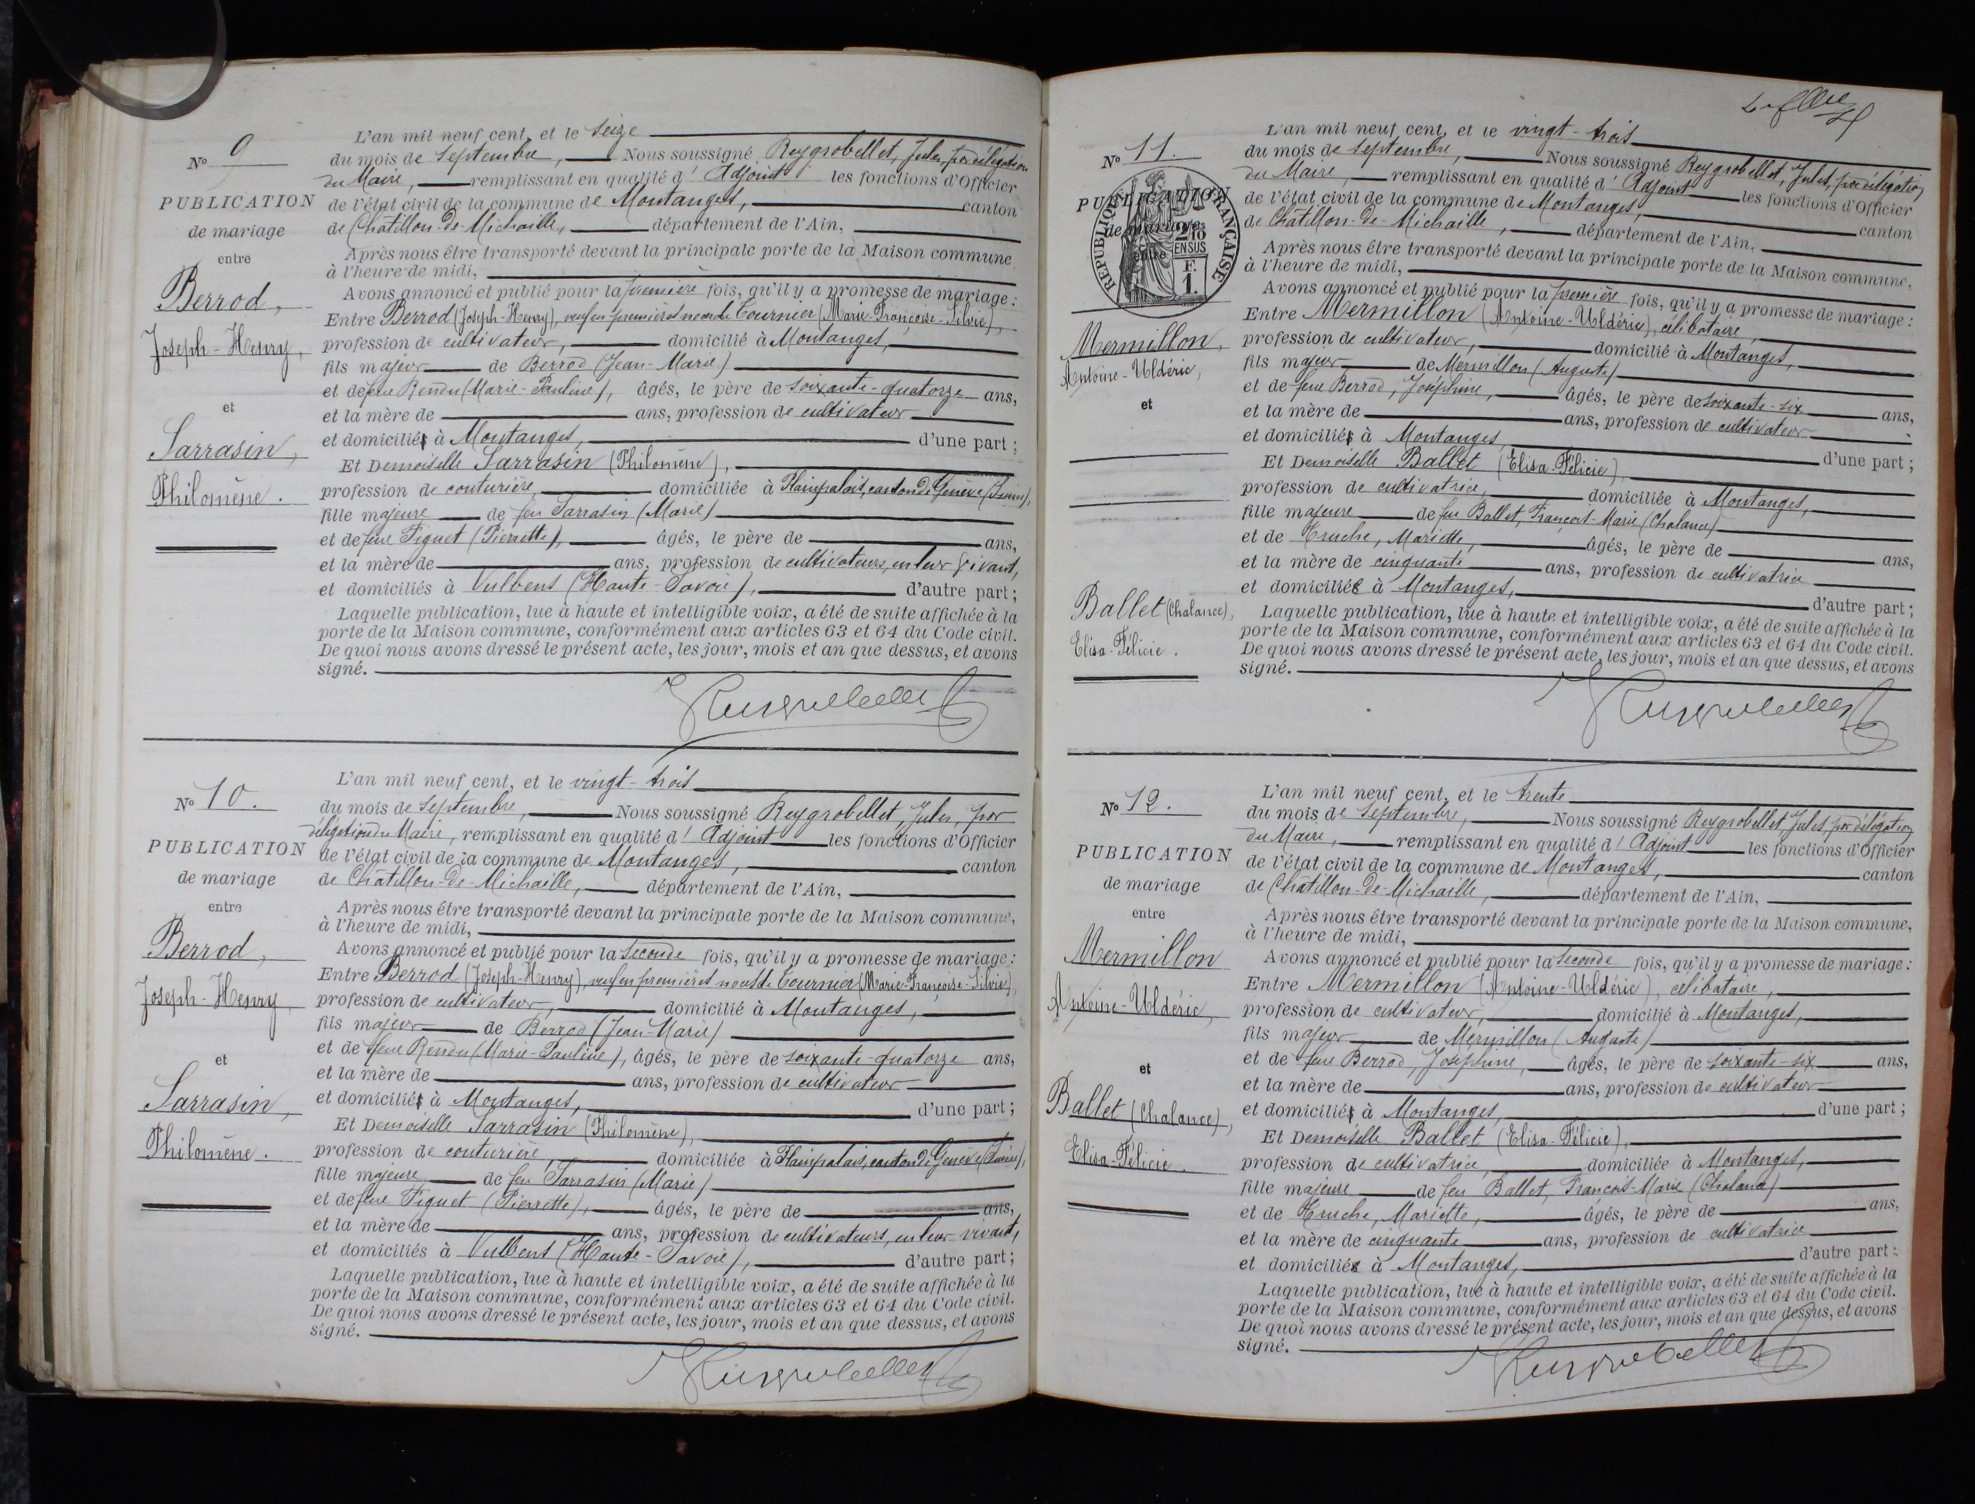 L'an mil neuf cent, et le seize
N° 9
du mois de septembre, Nous soussigné Reygrobellet, Jules, par délégation
du Maire, remplissant en qualité d'Adjoint les fonctions d'Officier
PUBLICATION
de l'état civil de la commune de Montanges, canton
de mariage
de Châtillon-de-Michaille, département de l'Ain.
entre
Après nous être transporté devant la principale porte de la Maison commune
à l'heure de midi,
Berrod,
Avons annoncé et publié pour la première fois, qu'il y a promesse de mariage :
Entre Berrod (Joseph-Henry), veuf en premières noces de Tournier (Marie-Françoise-Silvie),
Joseph-Henry,
profession de cultivateur, domicilié à Montanges,
fils majeur de Berrod (Jean-Marie)
et de feue Rendu (Marie-Pauline), âgés, le père de soixante-quatorze ans,
et
et la mère de ans, profession de cultivateur
Sarrasin,
et domiciliés à Montanges, d'une part ;
Et Demoiselle Sarrasin (Philomène),
Philomène.
profession de couturière, domiciliée à Plainpalais, canton de Genève (Suisse),
fille majeure de feu Sarrasin (Marie)
et de feue Piquet (Pierrette), âgés, le père de ans,
et la mère de ans, profession de cultivateurs, en leur vivant,
et domiciliés à Vulbens (Haute-Savoie), d'autre part ;
Laquelle publication, lue à haute et intelligible voix, a été de suite affichée à la
porte de la Maison commune, conformément aux articles 63 et 64 du Code civil.
De quoi nous avons dressé le présent acte, les jour, mois et an que dessus, et avons
signé.
Reygrobellet
L'an mil neuf cent, et le vingt-trois
N° 10.
du mois de septembre, Nous soussigné Reygrobellet, Jules, par
délégation du Maire, remplissant en qualité d'Adjoint les fonctions d'Officier
PUBLICATION
de l'état civil de la commune de Montanges, canton
de mariage
de Châtillon-de-Michaille, département de l'Ain,
entre
Après nous être transporté devant la principale porte de la Maison commune,
à l'heure de midi,
Berrod,
Avons annoncé et publié pour la seconde fois, qu'il y a promesse de mariage :
Entre Berrod (Joseph-Henry), veuf en premières noces de Tournier (Marie-Françoise-Silvie),
Joseph-Henry,
profession de cultivateur, domicilié à Montanges,
fils majeur de Berrod (Jean-Marie)
et de feue Rendu (Marie-Pauline), âgés, le père de soixante-quatorze ans,
et
et la mère de ans, profession de cultivateur
Sarrasin,
et domiciliés à Montanges, d'une part ;
Et Demoiselle Sarrasin (Philomène),
Philomène.
profession de couturière, domiciliée à Plainpalais, canton de Genève (Suisse),
fille majeure de feu Sarrasin (Marie)
et de feue Piquet (Pierrette), âgés, le père de ans,
et la mère de ans, profession de cultivateurs, en leur vivant,
et domiciliés à Vulbens (Haute-Savoie), d'autre part ;
Laquelle publication, lue à haute et intelligible voix, a été de suite affichée à la
porte de la Maison commune, conformément aux articles 63 et 64 du Code civil.
De quoi nous avons dressé le présent acte, les jour, mois et an que dessus, et avons
signé.
Reygrobellet
L'an mil neuf cent, et le vingt-trois
N° 11.
du mois de septembre, Nous soussigné Reygrobellet, Jules, par délégation
du Maire, remplissant en qualité d'Adjoint les fonctions d'Officier
PUBLICATION
de l'état civil de la commune de Montanges, canton
de mariage
de Châtillon-de-Michaille, département de l'Ain.
entre
RÉPUBLIQUE FRANÇAISE
2/10
EN SUS
F.
1.
Après nous être transporté devant la principale porte de la Maison commune,
à l'heure de midi,
Avons annoncé et publié pour la première fois, qu'il y a promesse de mariage :
Entre Mermillon (Antoine-Uldéric), célibataire,
Mermillon,
profession de cultivateur, domicilié à Montanges,
Antoine-Uldéric,
fils majeur de Mermillon (Auguste)
et de feue Berrod, Joséphine, âgés, le père de soixante-six ans,
et
et la mère de ans, profession de cultivateur
et domiciliés à Montanges, d'une part ;
Et Demoiselle Ballet (Elisa-Félicie)
profession de cultivatrice, domiciliée à Montanges,
fille majeure de feu Ballet, François-Marie (Chalance)
et de Truche, Mariette, âgés, le père de ans,
et la mère de cinquante ans, profession de cultivatrice
et domiciliée à Montanges, d'autre part ;
Ballet (Chalance),
Laquelle publication, lue à haute et intelligible voix, a été de suite affichée à la
porte de la Maison commune, conformément aux articles 63 et 64 du Code civil.
Elisa-Félicie.
De quoi nous avons dressé le présent acte, les jour, mois et an que dessus, et avons
signé.
Reygrobellet
L'an mil neuf cent, et le trente
N° 12.
du mois de septembre, Nous soussigné Reygrobellet Jules par délégation
du Maire, remplissant en qualité d'Adjoint les fonctions d'Officier
PUBLICATION
de l'état civil de la commune de Montanges, canton
de mariage
de Châtillon-de-Michaille, département de l'Ain,
entre
Après nous être transporté devant la principale porte de la Maison commune,
à l'heure de midi,
Mermillon
Avons annoncé et publié pour la seconde fois, qu'il y a promesse de mariage :
Entre Mermillon (Antoine-Uldéric), célibataire,
Antoine-Uldéric,
profession de cultivateur, domicilié à Montanges,
fils majeur de Mermillon (Auguste)
et de feue Berrod, Joséphine, âgés, le père de soixante-six ans,
et
et la mère de ans, profession de cultivateur
Ballet (Chalance),
et domiciliés à Montanges, d'une part ;
Et Demoiselle Ballet (Elisa-Félicie),
Elisa-Félicie.
profession de cultivatrice, domiciliée à Montanges,
fille majeure de feu Ballet, François-Marie (Chalance)
et de Truche, Mariette, âgés, le père de ans,
et la mère de cinquante ans, profession de cultivatrice
et domiciliée à Montanges, d'autre part :
Laquelle publication, lue à haute et intelligible voix, a été de suite affichée à la
porte de la Maison commune, conformément aux articles 63 et 64 du Code civil.
De quoi nous avons dressé le présent acte, les jour, mois et an que dessus, et avons
signé.
Reygrobellet